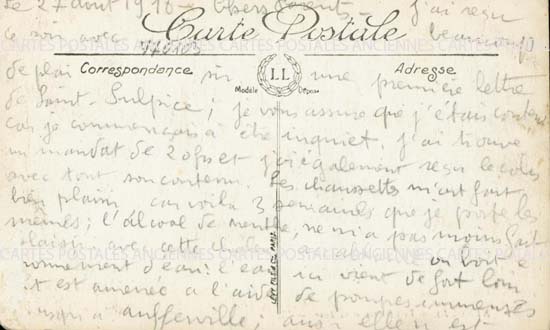 Le 27 août 1916 - Chers Parents - J'ai reçu
ce soir avec beaucoup
Carte Postale
Correspondance
Adresse
LL
Modèle Déposé
de plaisir une première lettre
de Saint-Sulpice ; je vous assure que j'étais content
car je commençais à être inquiet. j'ai trouvé
un mandat de 20 frs et j'ai également reçu le colis
avec tout son contenu. Les chaussettes m'ont fait
bien plaisir, car voilà 3 semaines que je porte les
mêmes ; l'alcool de menthe, ne m'a pas moins fait
plaisir avec cette chaleur on boit
d'eau ; l'eau ici vient de fort loin
et est amenée à l'aide de pompes immenses
jusqu'à Auffeville ; aussi elle n'est
CARTES POSTALES ANCIENNES